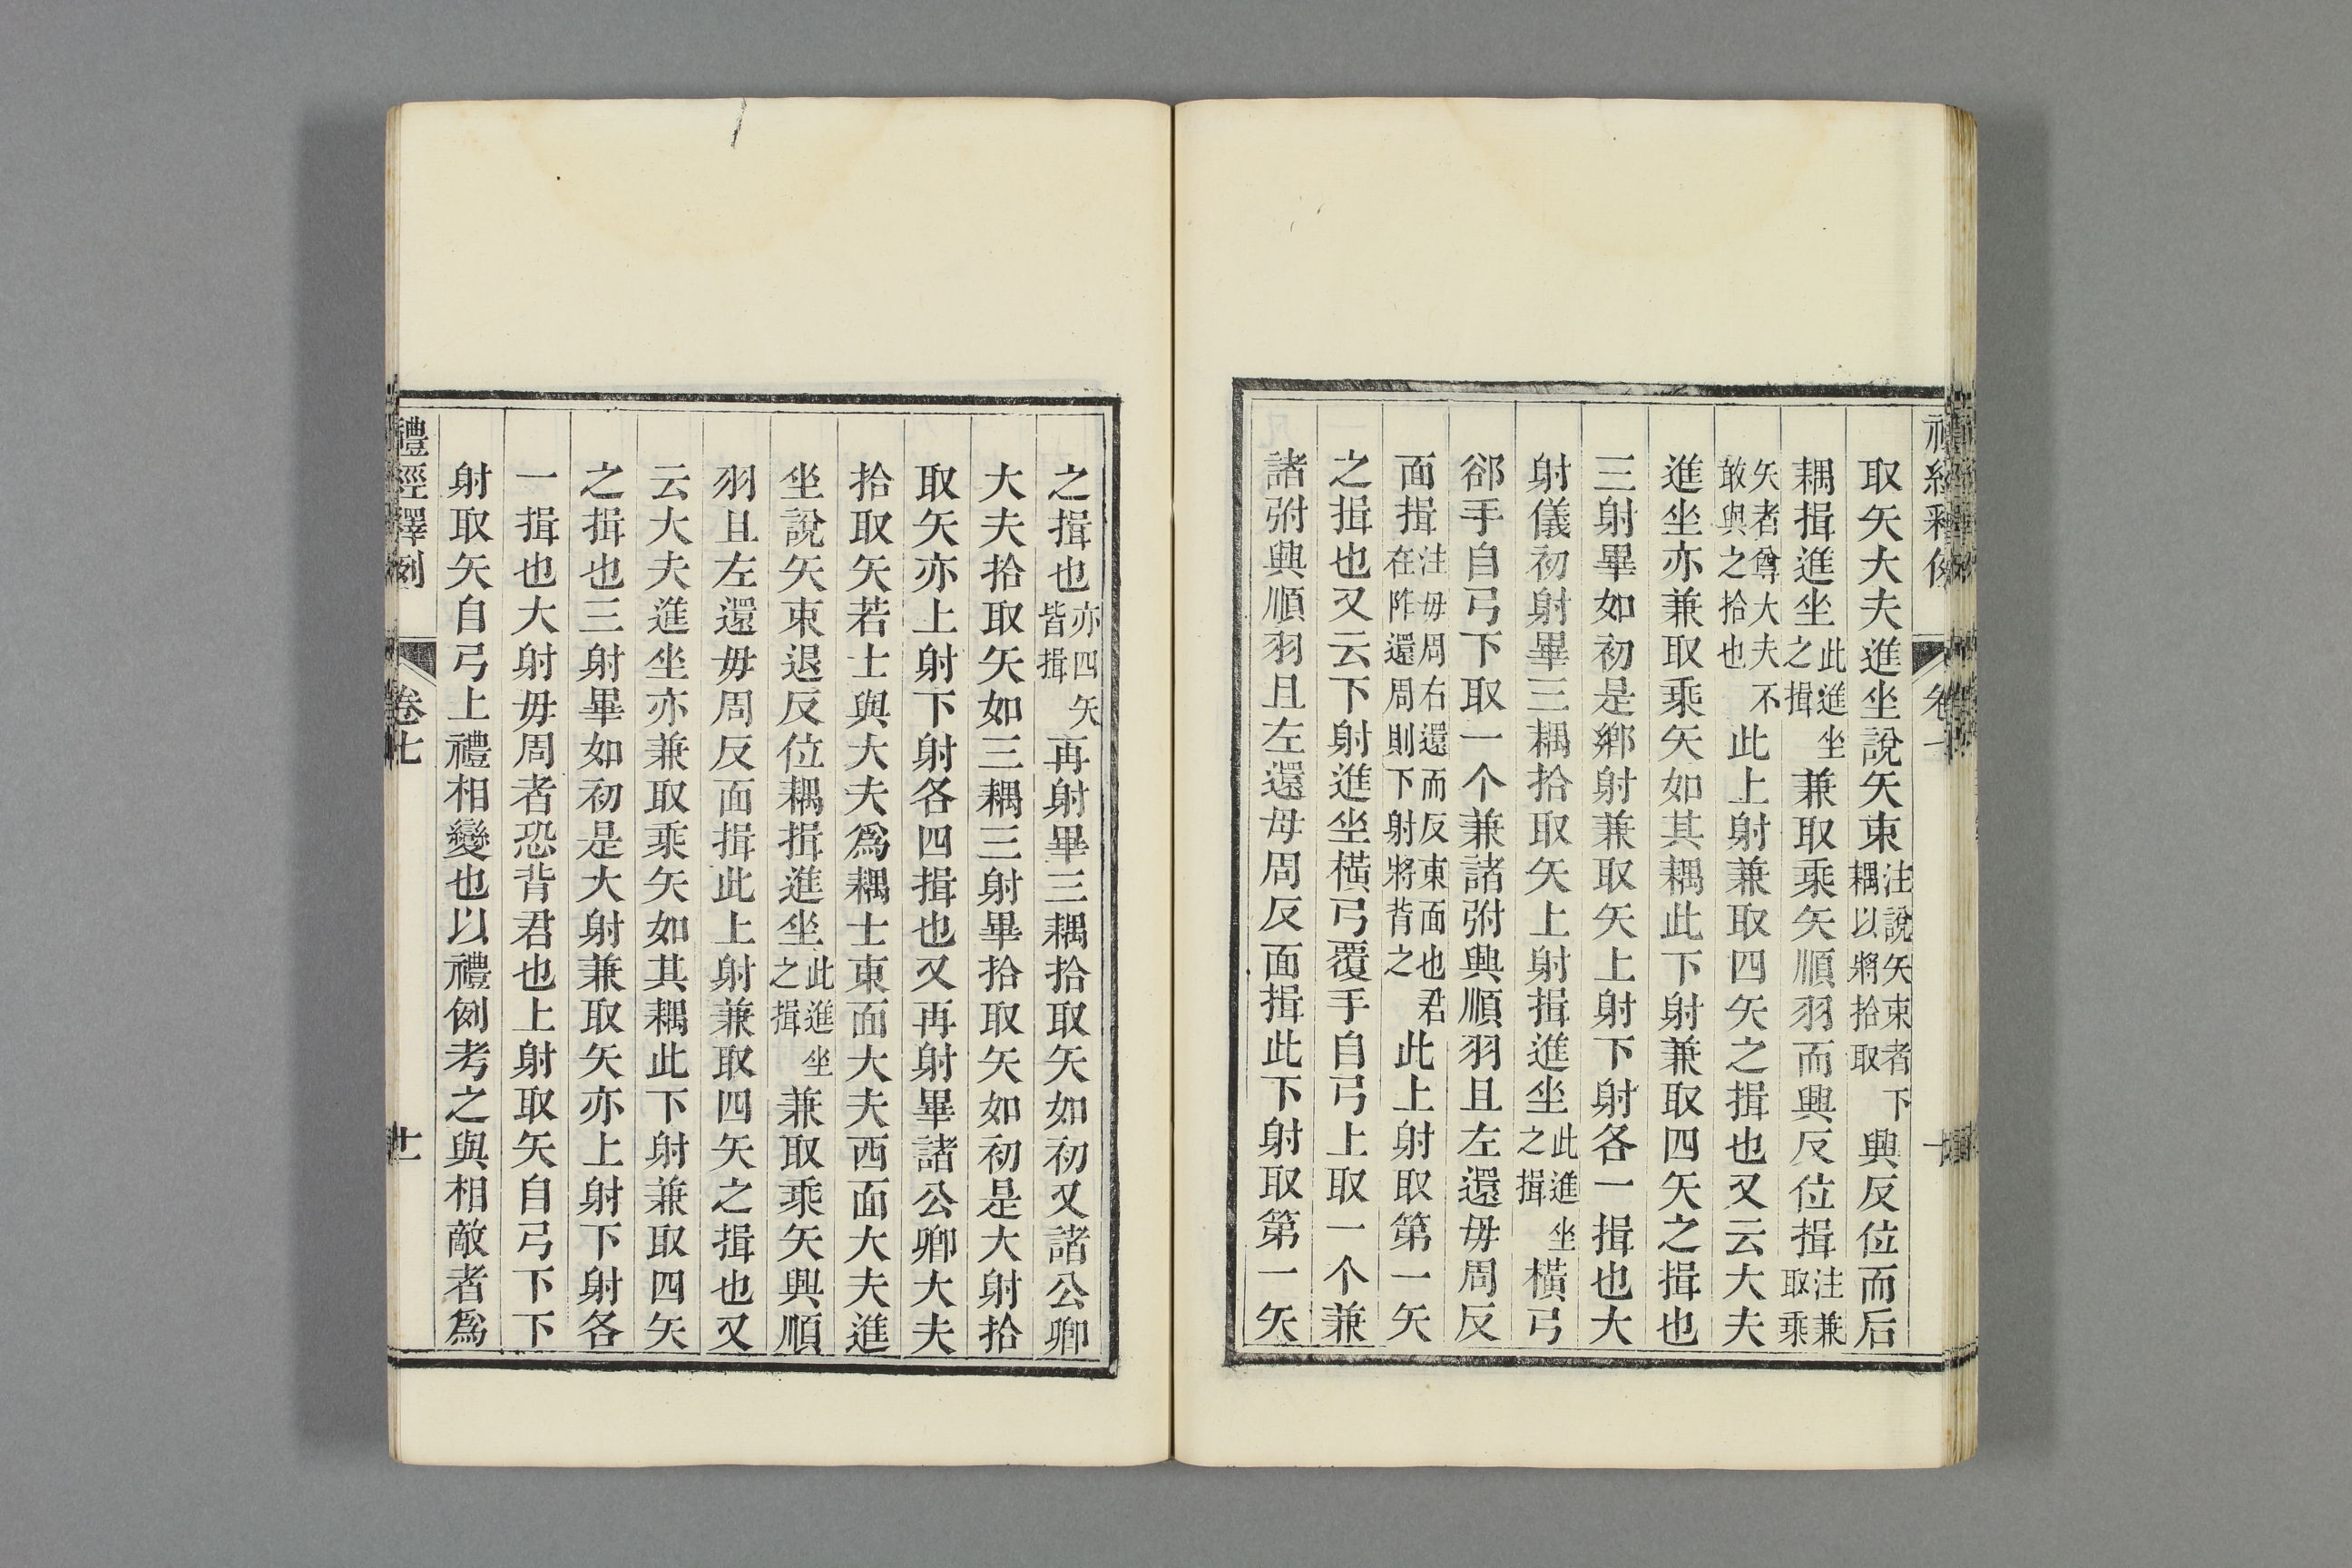 取矢大夫進坐說矢束注說矢束者下耦以將拾取興反位而后
耦揖進坐此進坐之揖兼取乘矢順羽而興反位揖注兼取乘
矢者尊大夫不敢與之拾也此上射兼取四矢之揖也又云大夫
進坐亦兼取乘矢如其耦此下射兼取四矢之揖也
三射畢如初是鄉射兼取矢上射下射各一揖也大
射儀初射畢三耦拾取矢上射揖進坐此進坐之揖橫弓
郤手自弓下取一个兼諸弣興順羽且左還毋周反
面揖注毋周右還而反東面也君在阼還周則下射將背之此上射取第一矢
之揖也又云下射進坐橫弓覆手自弓上取一个兼
諸弣興順羽且左還毋周反面揖此下射取第一矢
之揖也亦四矢皆揖再射畢三耦拾取矢如初又諸公卿
大夫拾取矢如三耦三射畢拾取矢如初是大射拾
取矢亦上射下射各四揖也又再射畢諸公卿大夫
拾取矢若士與大夫爲耦士東面大夫西面大夫進
坐說矢束退反位耦揖進坐此進坐之揖兼取乘矢興順
羽且左還毋周反面揖此上射兼取四矢之揖也又
云大夫進坐亦兼取乘矢如其耦此下射兼取四矢
之揖也三射畢如初是大射兼取矢亦上射下射各
一揖也大射毋周者恐背君也上射取矢自弓下下
射取矢自弓上禮相變也以禮例考之與相敵者爲
禮經釋例 卷七 十一